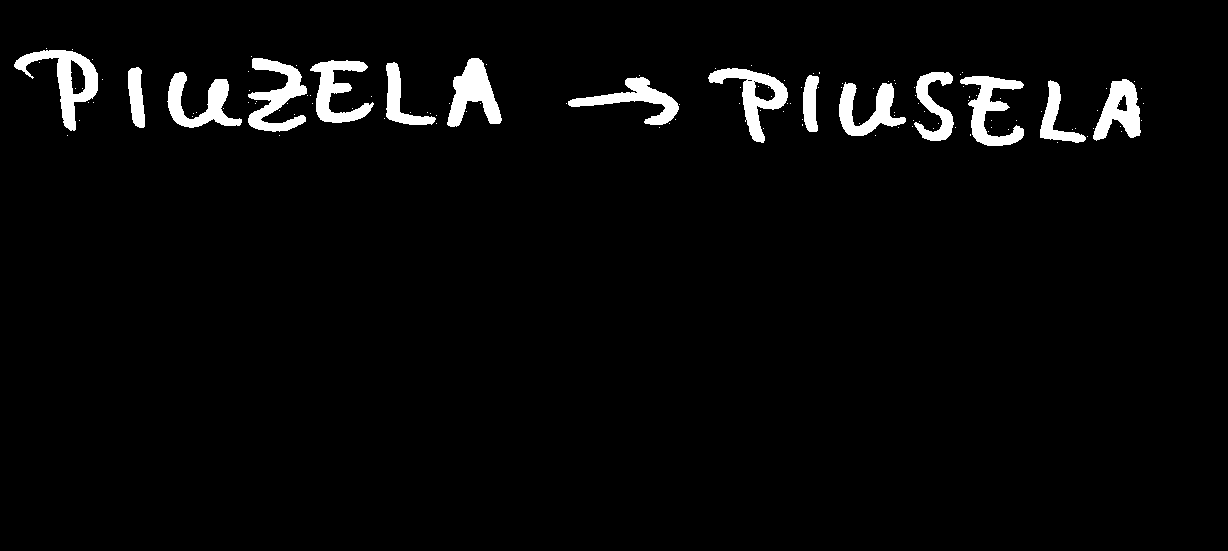 PIUZELA → PIUSELA